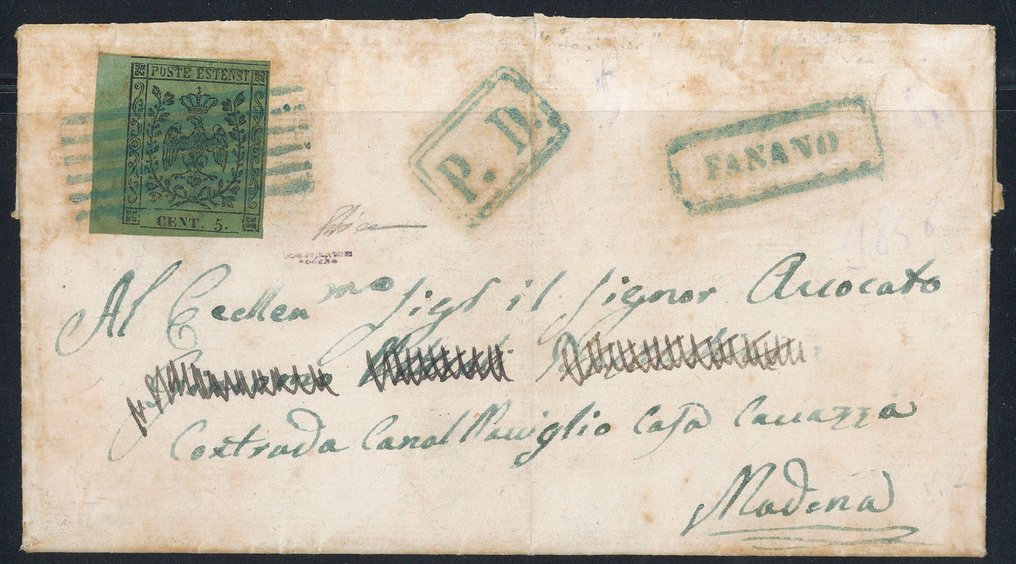 POSTE ESTENSI
CENT. 5.
P. D.
FANANO
Al Eccllen mo Sigr il Signor Avvocato
Contrada Canal Naviglio Casa Cavazza
Modena